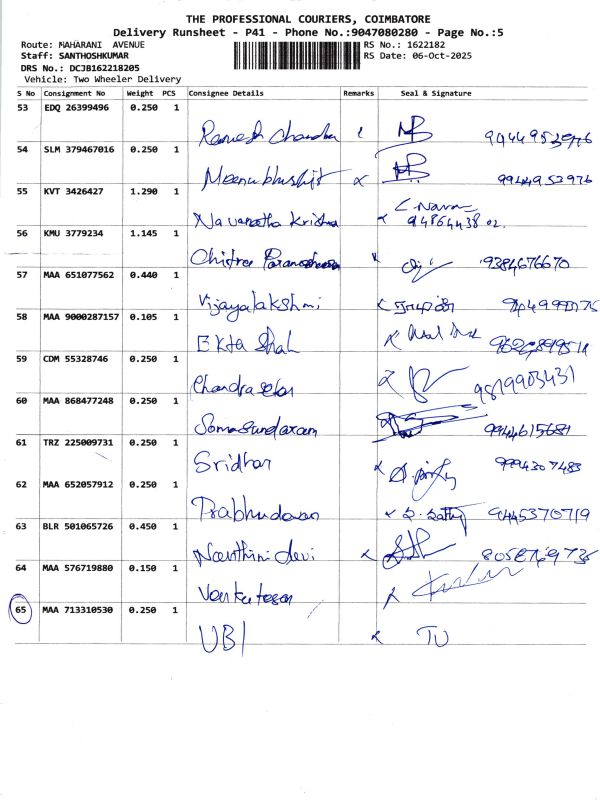 THE PROFESSIONAL COURIERS, COIMBATORE
Delivery Runsheet - P41 - Phone No.:9047080280 - Page No.:5
Route: MAHARANI AVENUE
RS No.: 1622182
Staff: SANTHOSHKUMAR
RS Date: 06-Oct-2025
DRS No.: DCJB162218205
Vehicle: Two Wheeler Delivery
S No Consignment No Weight PCS Consignee Details Remarks Seal & Signature
53 EDQ 26399496 0.250 1
Ramesh Chandra
54 SLM 379467016 0.250 1
9944952976
55 KVT 3426427 1.290 1
Navaneetha Krishna 9486443802.
56 KMU 3779234 1.145 1
Chitra 9384676670
57 MAA 651077562 0.440 1
Vijayalakshmi
58 MAA 9000287157 0.105 1
Ekta Shah
59 CDM 55328746 0.250 1
Chandrasekar 9819903431
60 MAA 868477248 0.250 1
Somasundaram 9944615681
61 TRZ 225009731 0.250 1
Sridhar 9994307483
62 MAA 652057912 0.250 1
Prabhudevan 9445370719
63 BLR 501065726 0.450 1
Nanthini devi
64 MAA 576719880 0.150 1
Venkatesan
65 MAA 713310530 0.250 1
UBI